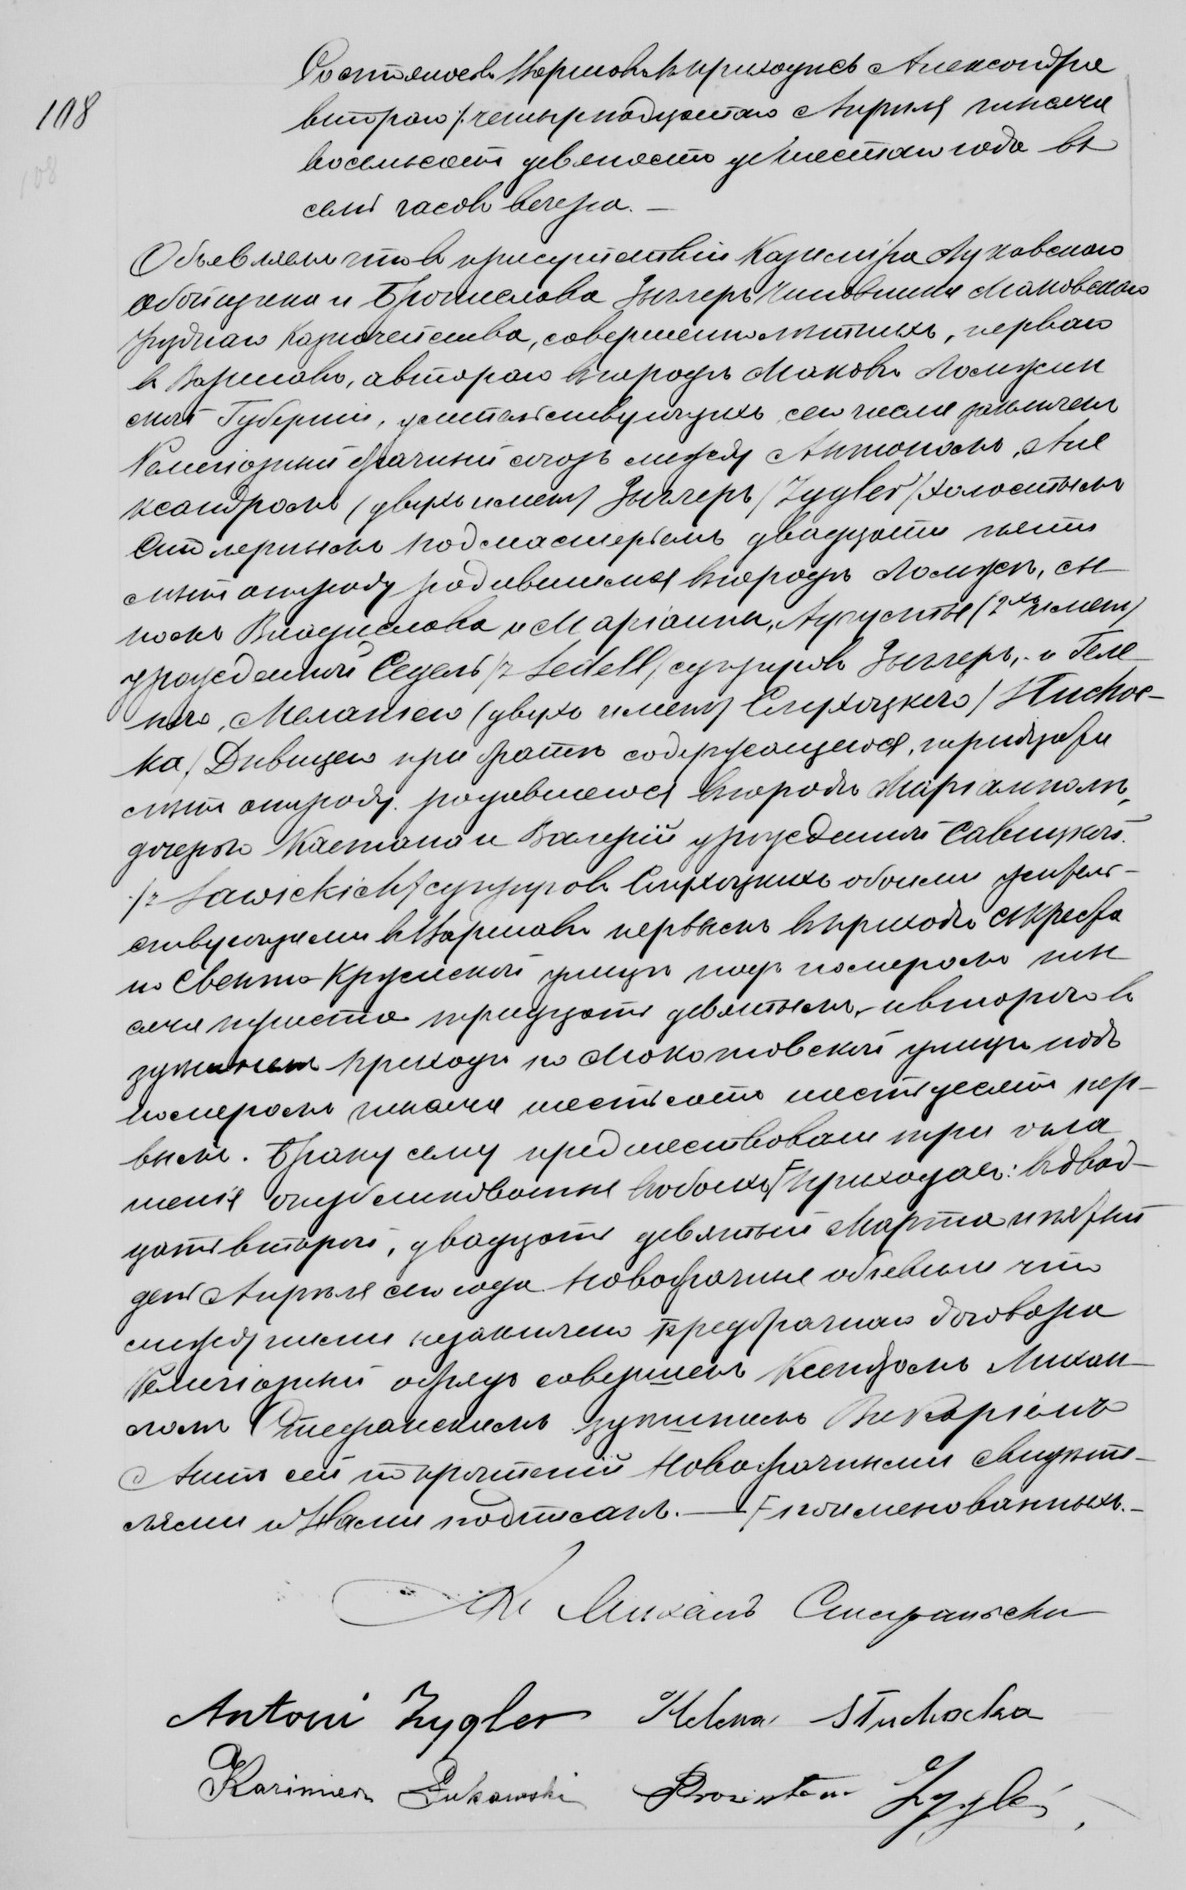 108
108
Состоялось Варшавѣ въ приходѣ св Александра
второго /:четырнадцатаго Апрѣля тысяча
восемьсотъ девяносто шестаго года въ
семь часовъ вечера. —
Объявляемъ что въ присутствіи Казиміра Луковскаго
обойщика и Бронислава Зыглеръ чиновника Маковскаго
Уѣзднаго Казначейства, совершеннолѣтныхъ, перваго
въ Варшавѣ, автораго въ городѣ Маковѣ Ломжин
ской Губерніи, жительствующихъ сего числа заключенъ
Религіозный брачный союзъ между Антономъ, Але
ксандромъ (двухъ именъ) Зыглеръ /Zygler/ холостымъ
Столярнымъ подмастерьемъ двадцати пяти
лѣтъ отъ роду родившимся въ городѣ Ломжѣ, сы
номъ Владислава и Маріанны, Августы (2хъ именъ)
урожденной Седель /z Sedell/ супруговъ Зыглеръ, и Геле
ною, Меланіею (двухъ именъ) Стухоцкою /Stuchoc-
ka/ Дѣвицею при братѣ содержащеюся, тридцати
лѣтъ отъ роду родившеюся въ городѣ Маріамполѣ,
дочерью Каетана и Валеріи урожденной Савицкой
/z Sawickich/ супруговъ Стухоцкихъ обоими житель-
ствующими въ Варшавѣ первымъ въ приходѣ св Креста
по Свенто-Кржиской улицѣ подъ номеромъ ты
сяча триста тридцать девятымъ, а второю въ
здѣшнемъ приходѣ по Мокотовской улицѣ подъ
номеромъ тысяча шестьсотъ шестьдесятъ пер-
вымъ. Браку сему предшествовали три огла
шенія опубликованныя въ обоихъ F приходахъ: въ двад-
цать второй, двадцать девятый Марта и пятый
день Апрѣля сего года. Новобрачные объявили что
между ними незаключено предбрачнаго договора
Религіозный обрядъ совершенъ Ксендзомъ Михаи-
ломъ Стефанскимъ здѣшнимъ Викаріемъ
Актъ сей по прочтеніи Новобрачными свидѣте-
лями и Нами подписанъ. — F поименованныхъ. —
Кс Михаилъ Стефанскій
Antoni Zygler Helena Stuchocka
Kazimierz Łukowski Bronisław Zygler